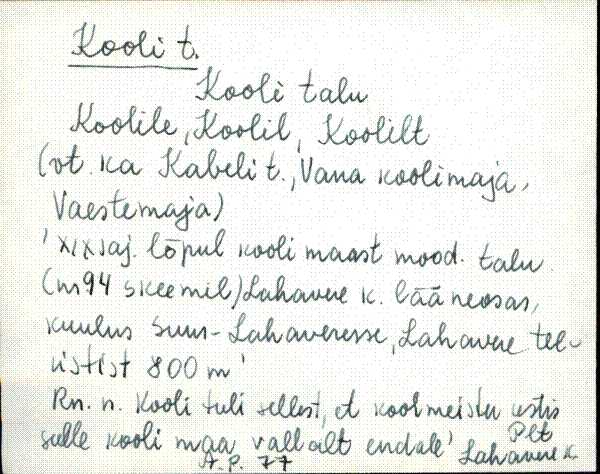 Kooli t.
Kooli talu
Koolile, Koolil, Koolilt
(vt. ka Kabeli t., Vana koolimaja,
Vaestemaja)
' XIX saj. lõpul kooli maast mood. talu
(nr 94 skeemil) Lahavere k. lääneosas,
kuulus Suur-Lahaveresse, Lahavere tee-
ristist 800 m'
Rn. n. Kooli tuli sellest, et koolmeister ostis
selle kooli maa vallalt endale'
Plt
A. P. 77
Lahavere k.